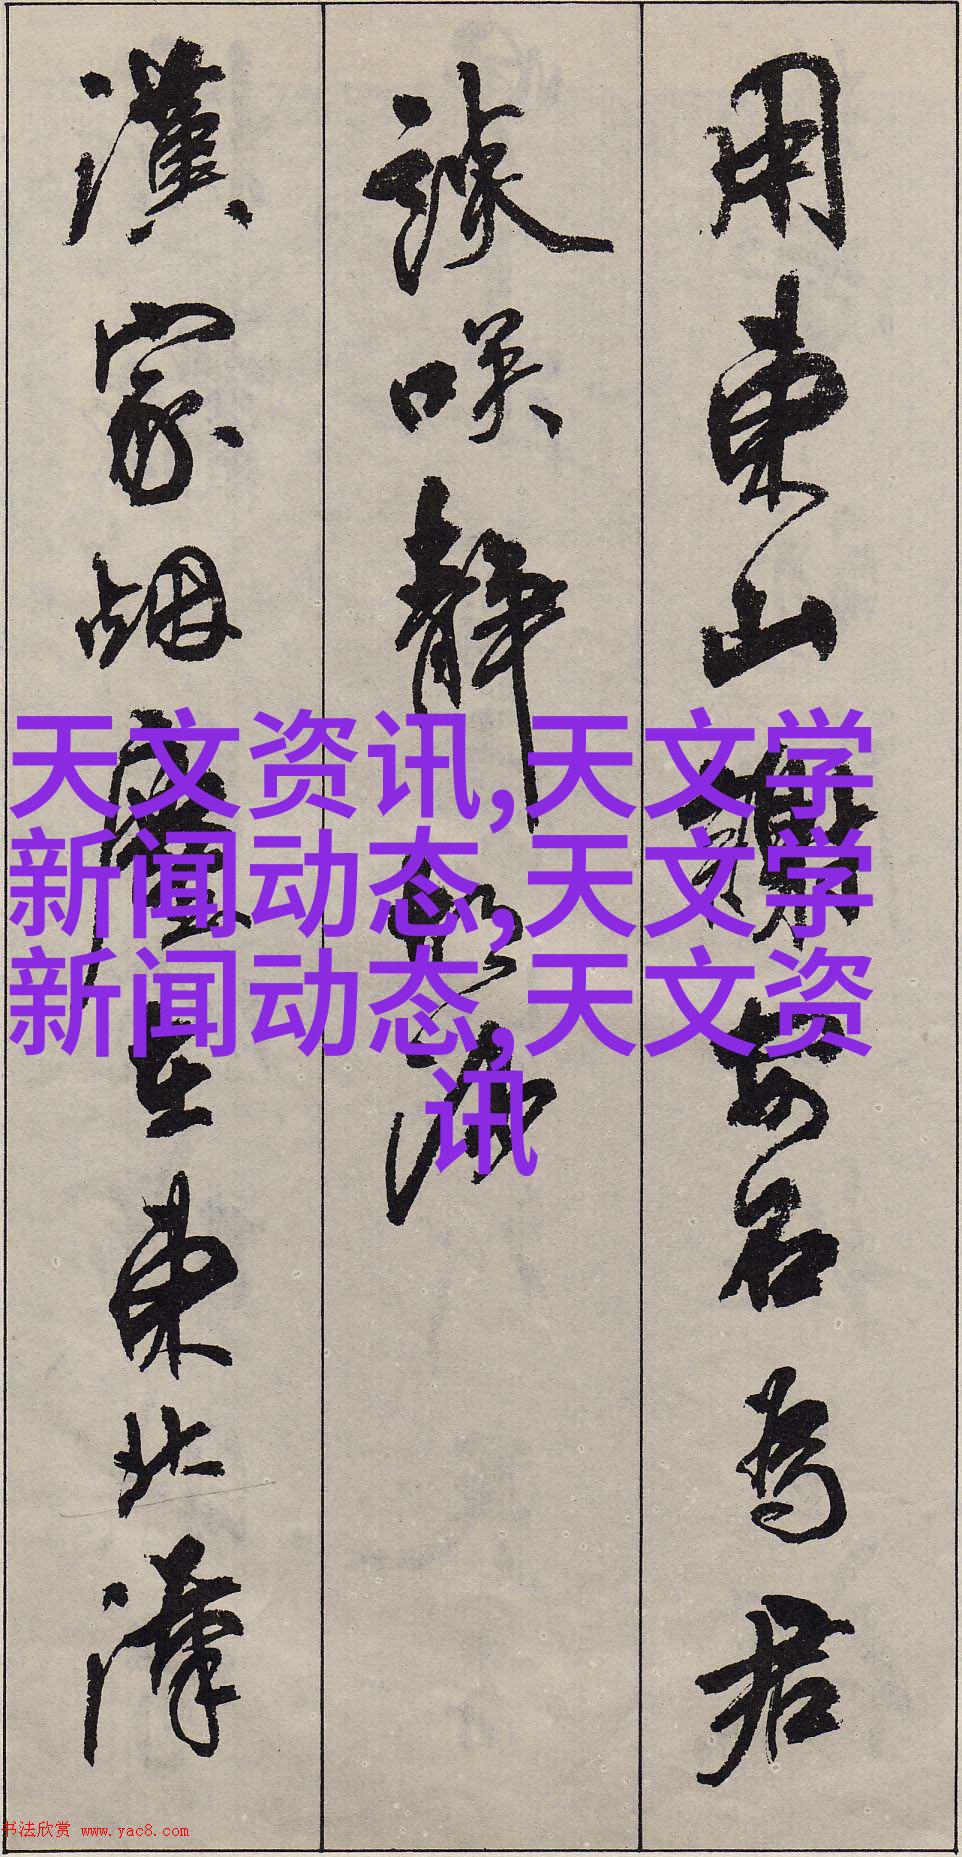 用東山謝安石為君
談笑靜胡沙
漢家烟塵在東北漢
天文资讯,天文学
新闻动态,天文学
新闻动态,天文资
讯
书法欣赏 www.yac8.com